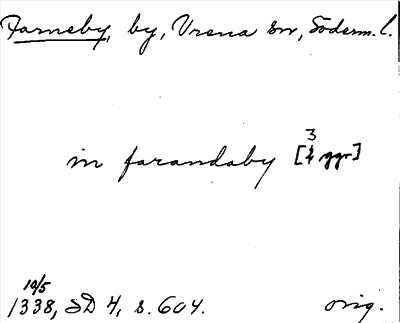 Farneby, by, Vrena sn, Söderm. l.
in farandaby [3 ggr]
10/5
1338, SD 4, s. 604. orig.